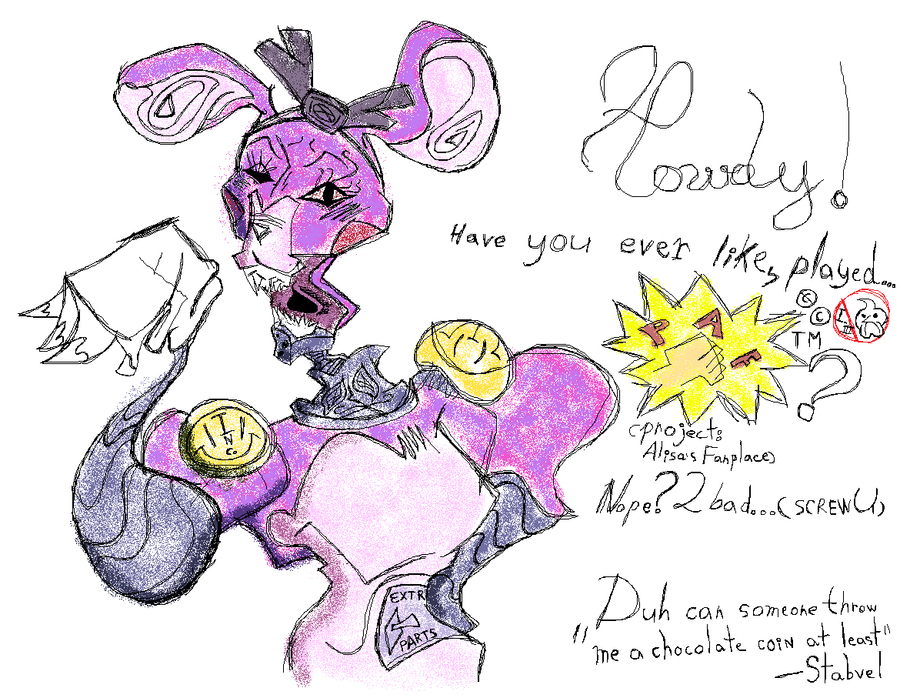 Howdy!
Have you ever like, played...
P A P
TM
?
(project:
Alisa's Fanplace)
Nope? 2 bad...(SCREW U)
INC.
EXTR
PARTS
"Duh can someone throw
me a chocolate coin at least"
—Stabvel